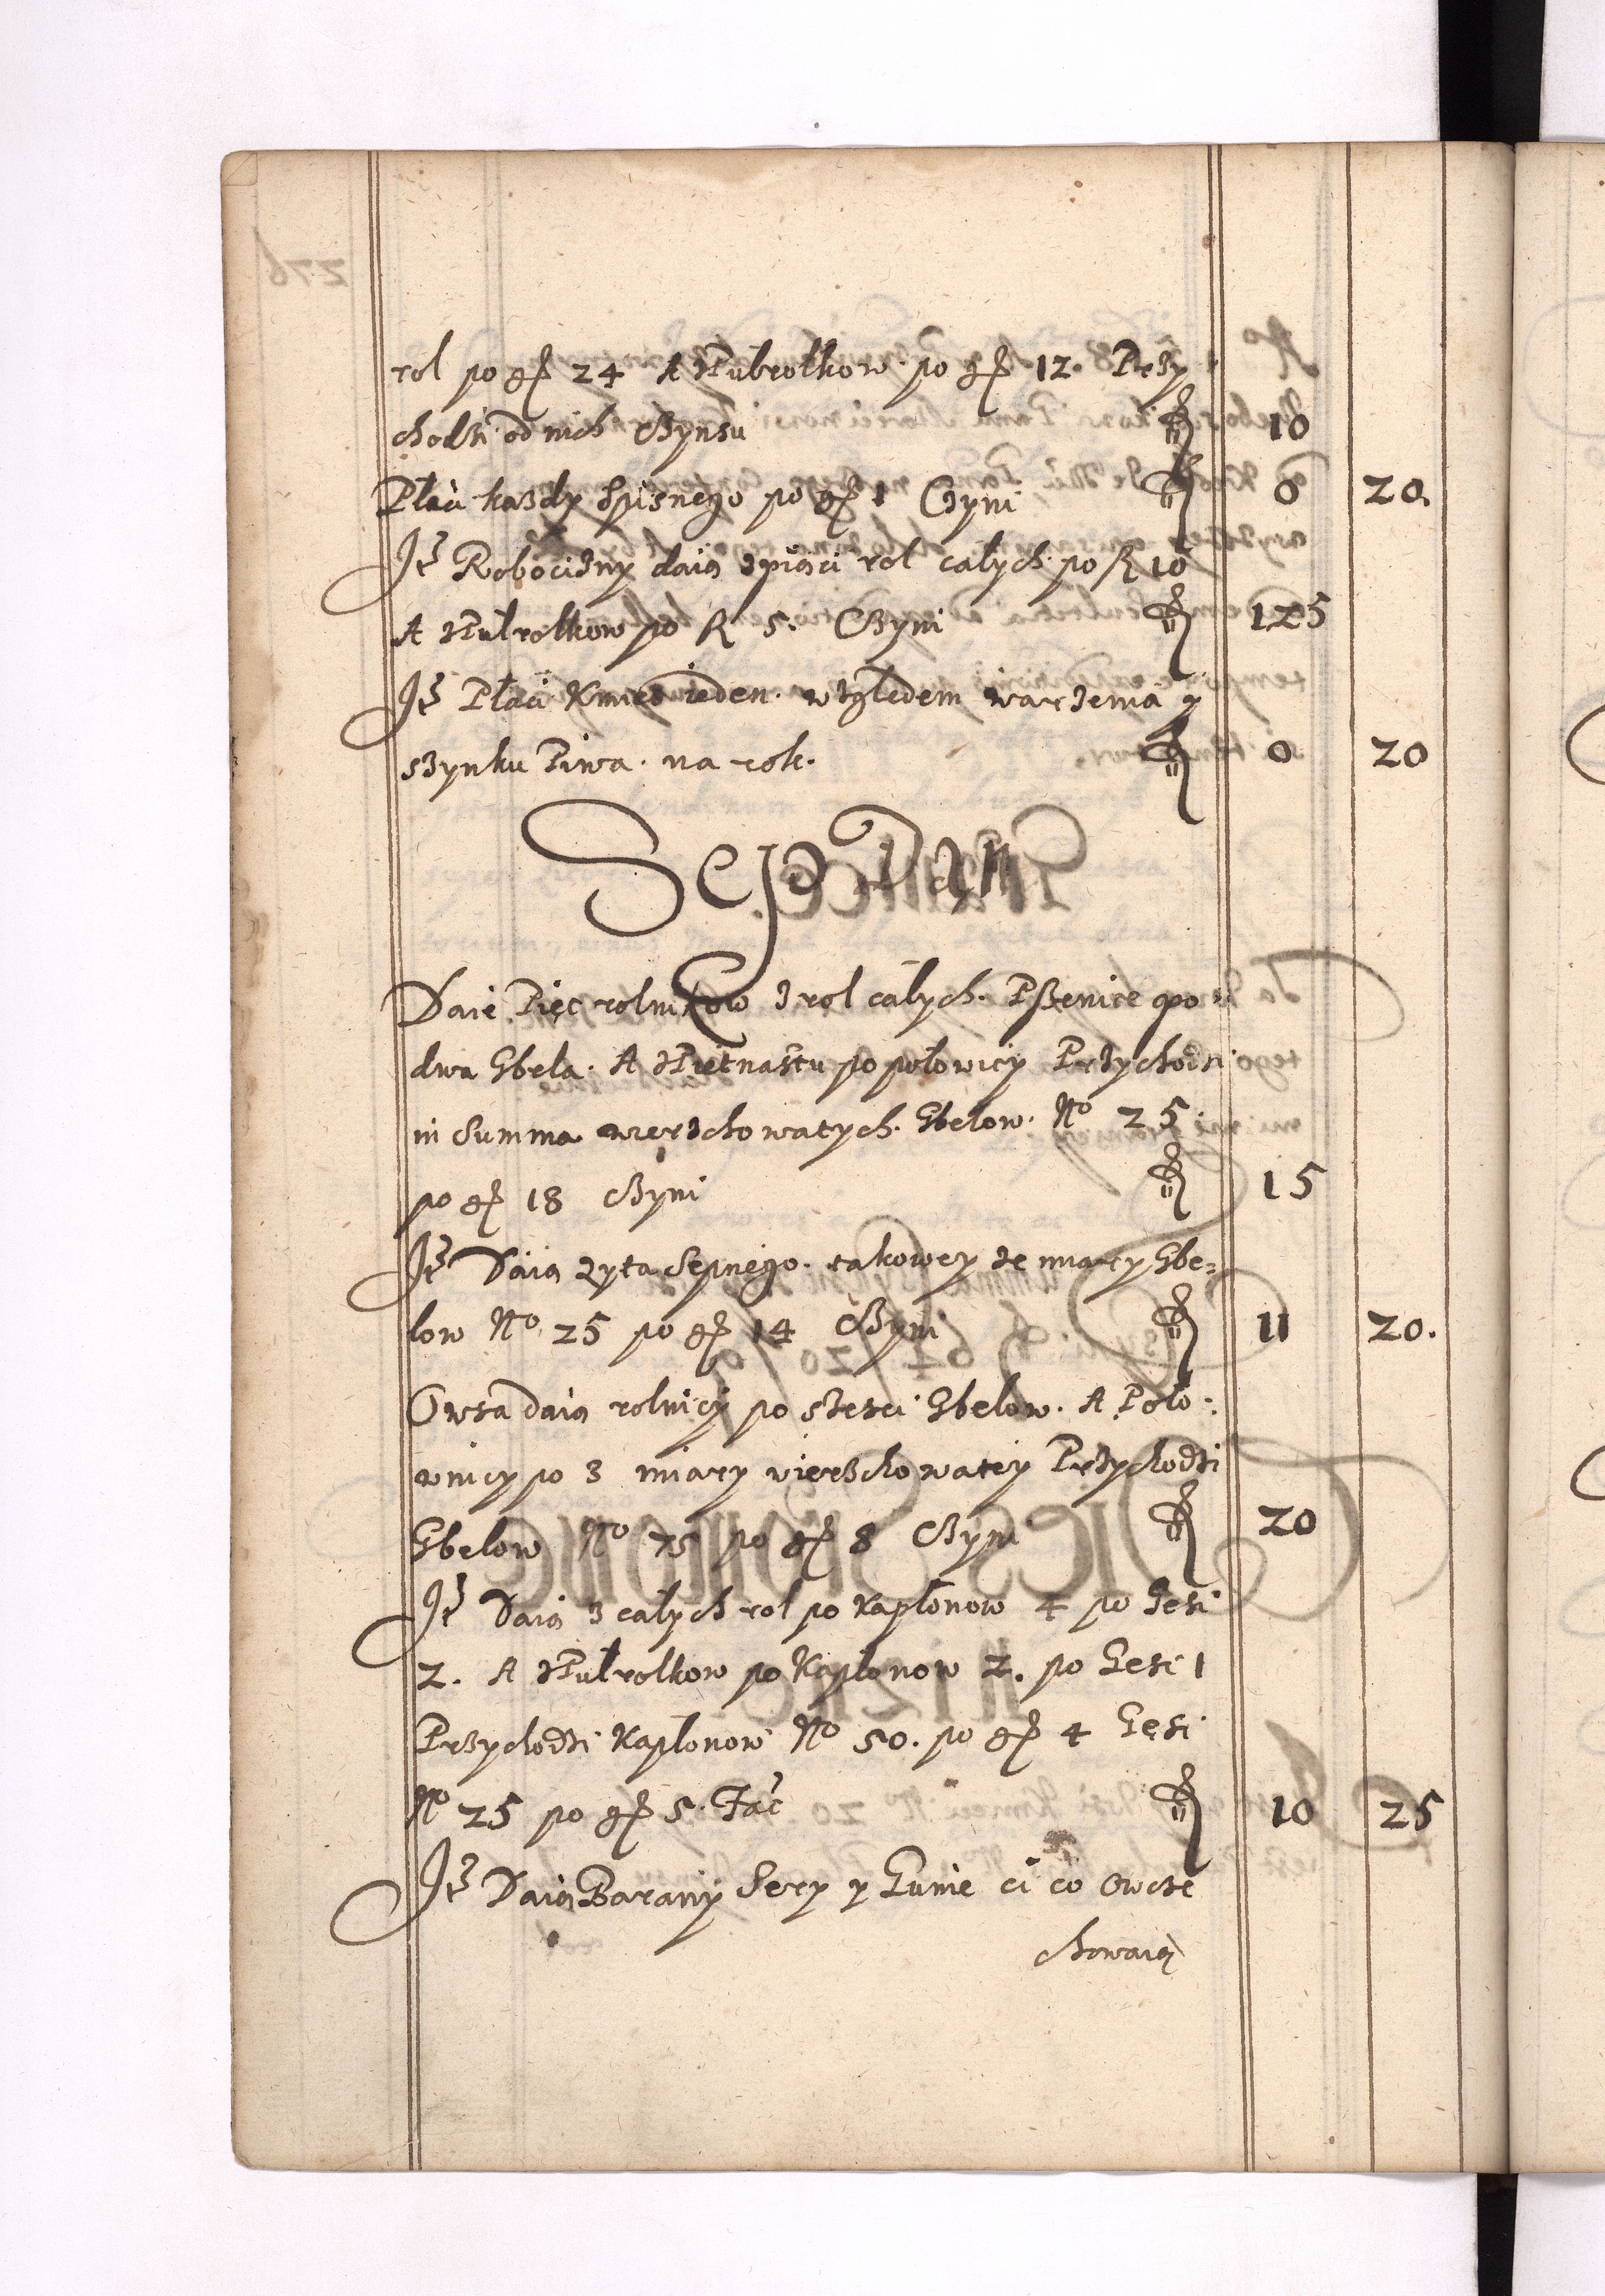 rol po gř 24 A z Pułrolkow po gř 12. Przy
chodzi od nich Czynsu fl 10
Płaci każdy Spisnego po gř 1 Czyni fl 0 20.
Jt Robocizny daią z piąci rol całych po fl 10
A z Pułrolkow po fl 5. Czyni fl 125
Jt Płaci Kmieć ieden względem warzenia y
szynku Piwa na rok. fl 0 20
Sep Dań
Daie Pięc rolnikow z rol całych Pszenice po
dwa Gbela. A z Piętnastu po połowicy Przychodzi
in Summa wierzchowatych Gbelow No 25
po gř 18 Czyni fl 15
Jt Daią żyta Sepnego takowey że miary Gbe=
low No 25 po gř 14 Czyni fl 11 20.
Owsa daią rolnicy po sześci Gbelow. A Poło:
wnicy po 3 miary wierzchowatey Przychodzi
Gbelow No 75 po gř 8 Czyni fl 20
Jt Daią z całych rol po Kapłonow 4 po Gęsi
2. A z Pułrolkow po Kapłonow 2. po Gęsi 1
Przychodzi Kapłonow No 50. po gř 4 Gęsi
No 25 po gř 5. Fać fl 10 25
Jt Daią Barany Sery y Gunie ci co owcze
chowaią